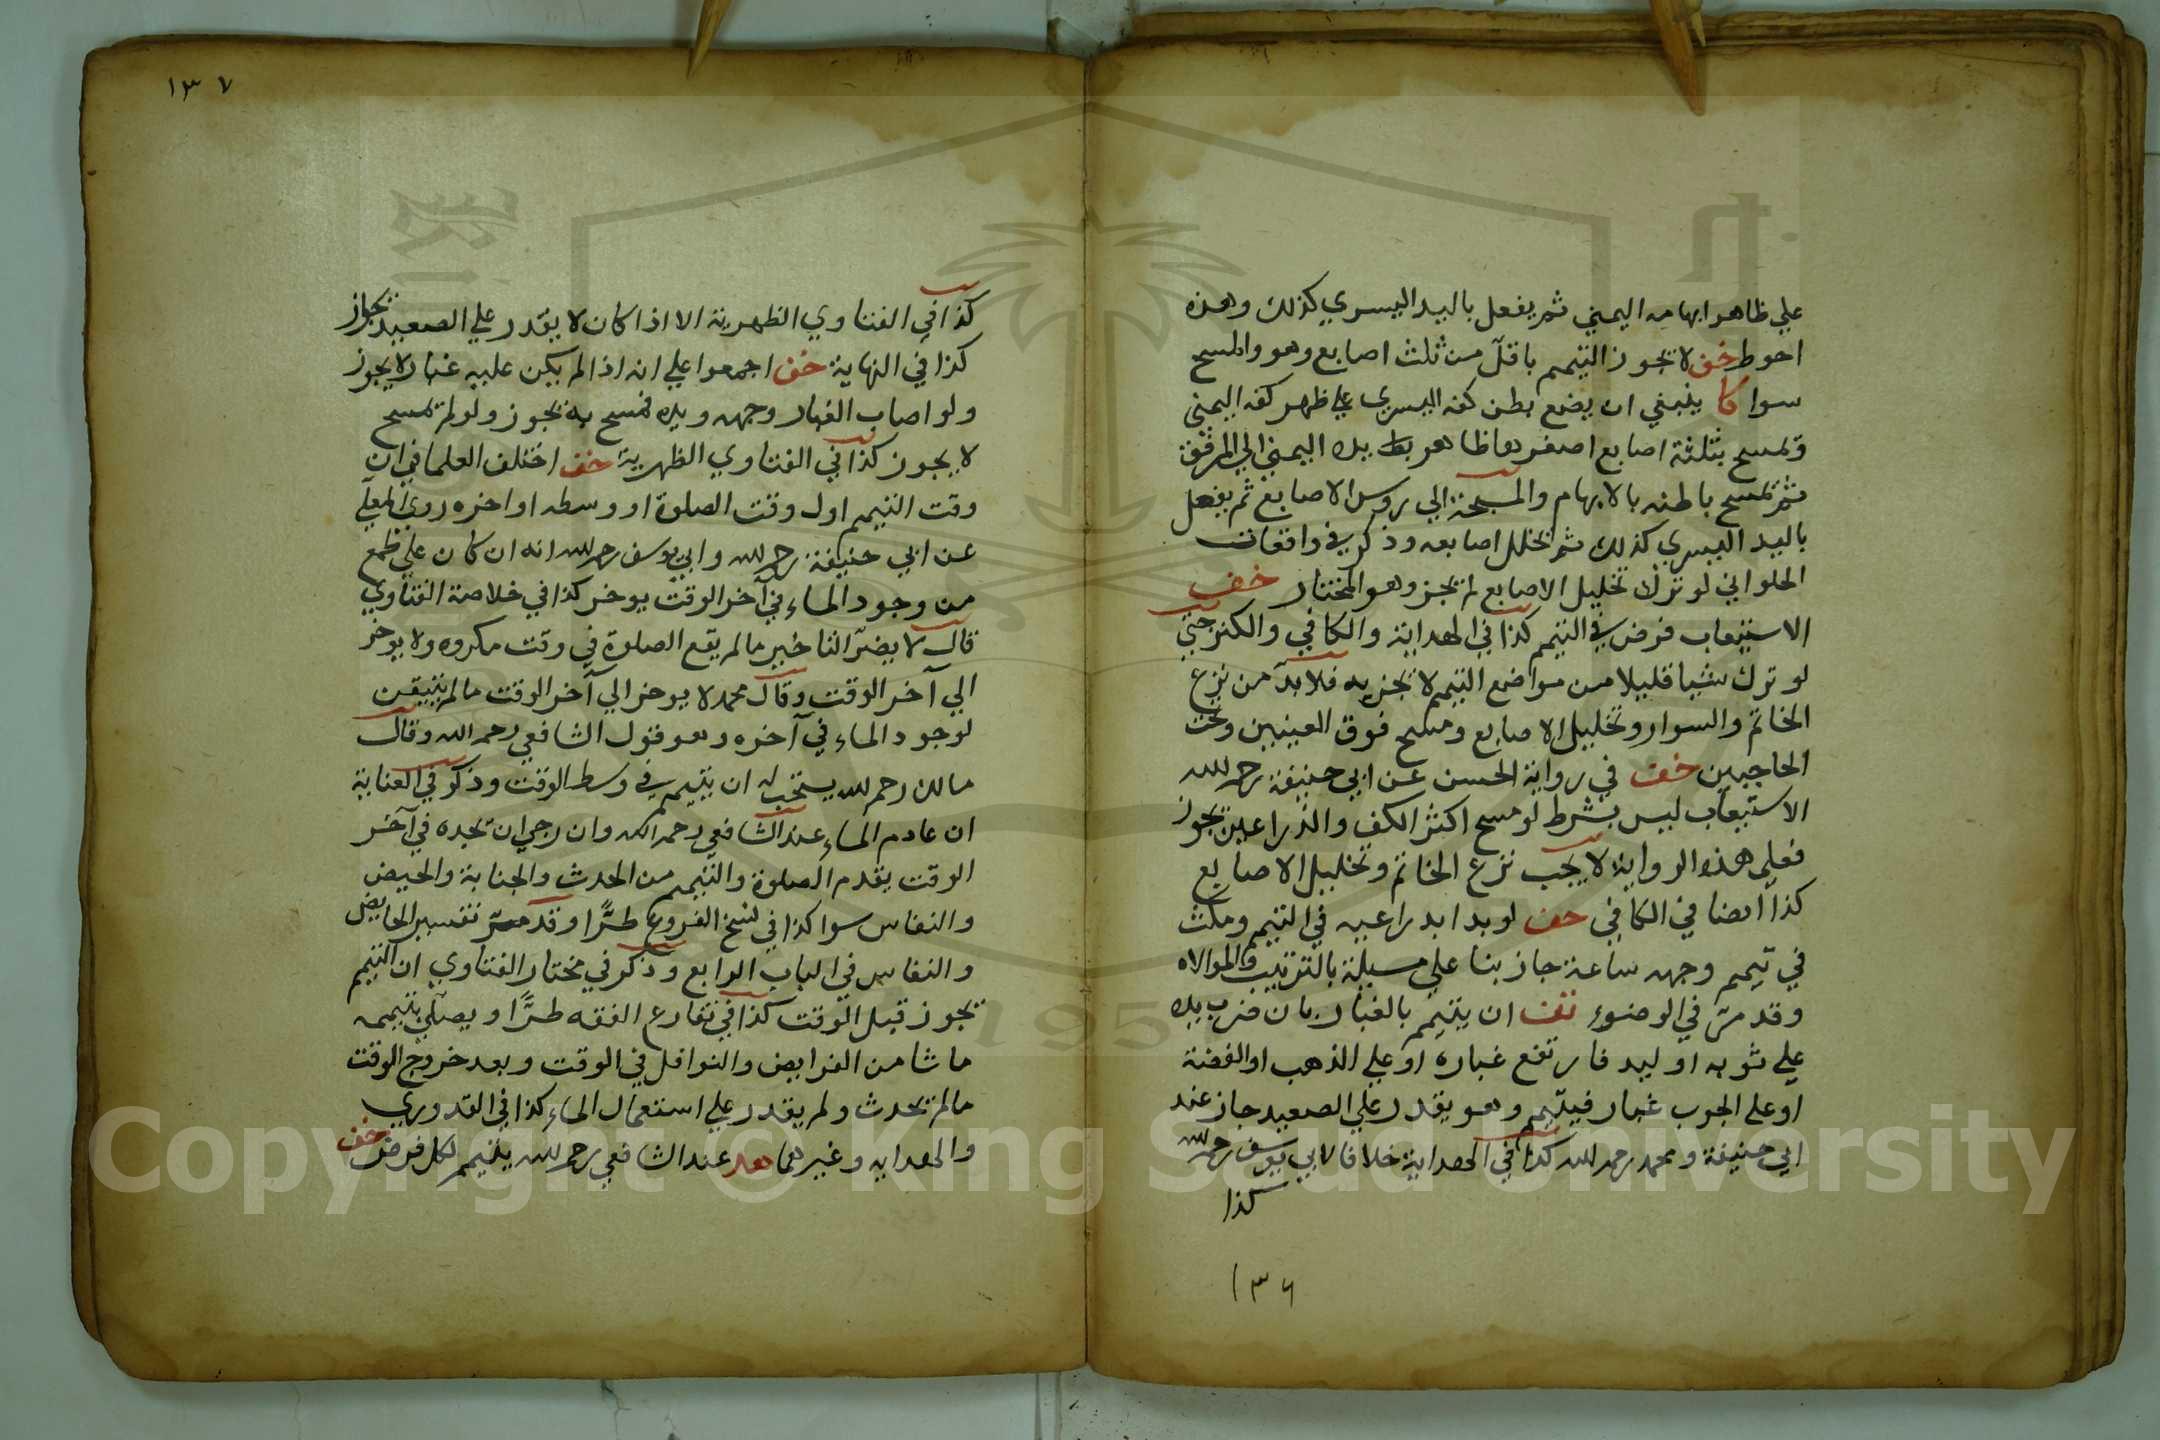 علي ظاهر ابهامه اليمني ثم يفعل باليد اليسري كذلك وهذه
احوط خف لا يجوز التيمم باقل من ثلث اصابع وهو والمسح
سوا كا ينبغي ان يضع بطن كفه اليسري علي ظهر كفه اليمني
ويمسح بثلثة اصابع اصغرها ظاهر يده اليمني الي المرفق
ثم يمسح باطنه بالابهام والمسبحة الي روس الاصابع ثم يفعل
باليد اليسري كذلك ثم يخلل اصابعه وذكر في واقعات
الحلواني لو ترك تخليل الاصابع لم يجز وهو المختار خف
الاستيعاب فرض في التيمم كذا في الهداية والكافي والكنز حتي
لو ترك شيا قليلا من مواضع التيمم لا يجزيه فلا بد من نزع
الخاتم والسوار وتخليل الاصابع ومسح فوق العينين وتحت
الحاجبين خف في رواية الحسن عن ابي حنيفة رحمه الله
الاستيعاب ليس بشرط لو مسح اكثر الكف والذراعين يجوز
فعلي هذه الرواية لا يجب نزع الخاتم وتخليل الاصابع
كذا ايضا في الكافي خف لو بدا بذراعيه في التيمم ومكث
في تيمم وجهه ساعة جاز بنا علي مسيلة بالترتيب والموالاه
وقد مر في الوضوء تف ان يتيمم بالغبار بان ضرب يده
علي ثوبه او لبد فارتفع غباره او علي الذهب او الفضة
او علي الحبوب غبار فيتيمم وهو يقدر علي الصعيد جاز عند
ابي حنيفة ومحمد رحمه الله كذا في الهداية خلافا لابي يوسف رحمه الله
كذا
١٣٦
١٣٧
كذا في الفتاوي الظهرية الا اذا كان لا يقدر علي الصعيد يجوز
كذا في النهاية خف اجمعوا علي انه اذا لم يكن عليه غبار لا يجوز
ولو اصاب الغبار وجهه ويده فمسح به يجوز ولو لم يمسح
لا يجوز كذا في الفتاوي الظهرية خف اختلف العلما في ان
وقت التيمم اول وقت الصلوة او وسطه او اخره روي المعلي
عن ابي حنيفة رحمه الله وابي يوسف رحمه الله انه ان كان علي طمع
من وجود الماء في آخر الوقت يوخر كذا في خلاصة الفتاوي
قال لا يضر التاخير ما لم يقع الصلوة في وقت مكروه ولا يوخر
الي آخر الوقت وقال محمد لا يوخر الي آخر الوقت ما لم يتيقن
لوجود الماء في آخره وهو قول الشافعي رحمه الله وقال
مالك رحمه الله يستحب له ان يتيمم في وسط الوقت وذكر في العناية
ان عادم الماء عند الشافعي رحمه الله وان رجي ان يجده في آخر
الوقت يقدم الصلوة والتيمم من الحدث والجنابة والحيض
والنفاس سوا كذا في نسخ الفروع طرا وقد مر تفسير الحايض
والنفاس في الباب الرابع وذكر في مختار الفتاوي ان التيمم
يجوز قبل الوقت كذا في تفارع الفقه طرا ويصلي بتيممه
ما شا من الفرايض والنوافل في الوقت وبعد خروج الوقت
ما لم يحدث ولم يقدر علي استعمال الماء كذا في القدوري
والهدايه وغيرهما هد عند الشافعي رحمه الله يتيمم لكل فرض خف
Copyright © King Saud University
1957